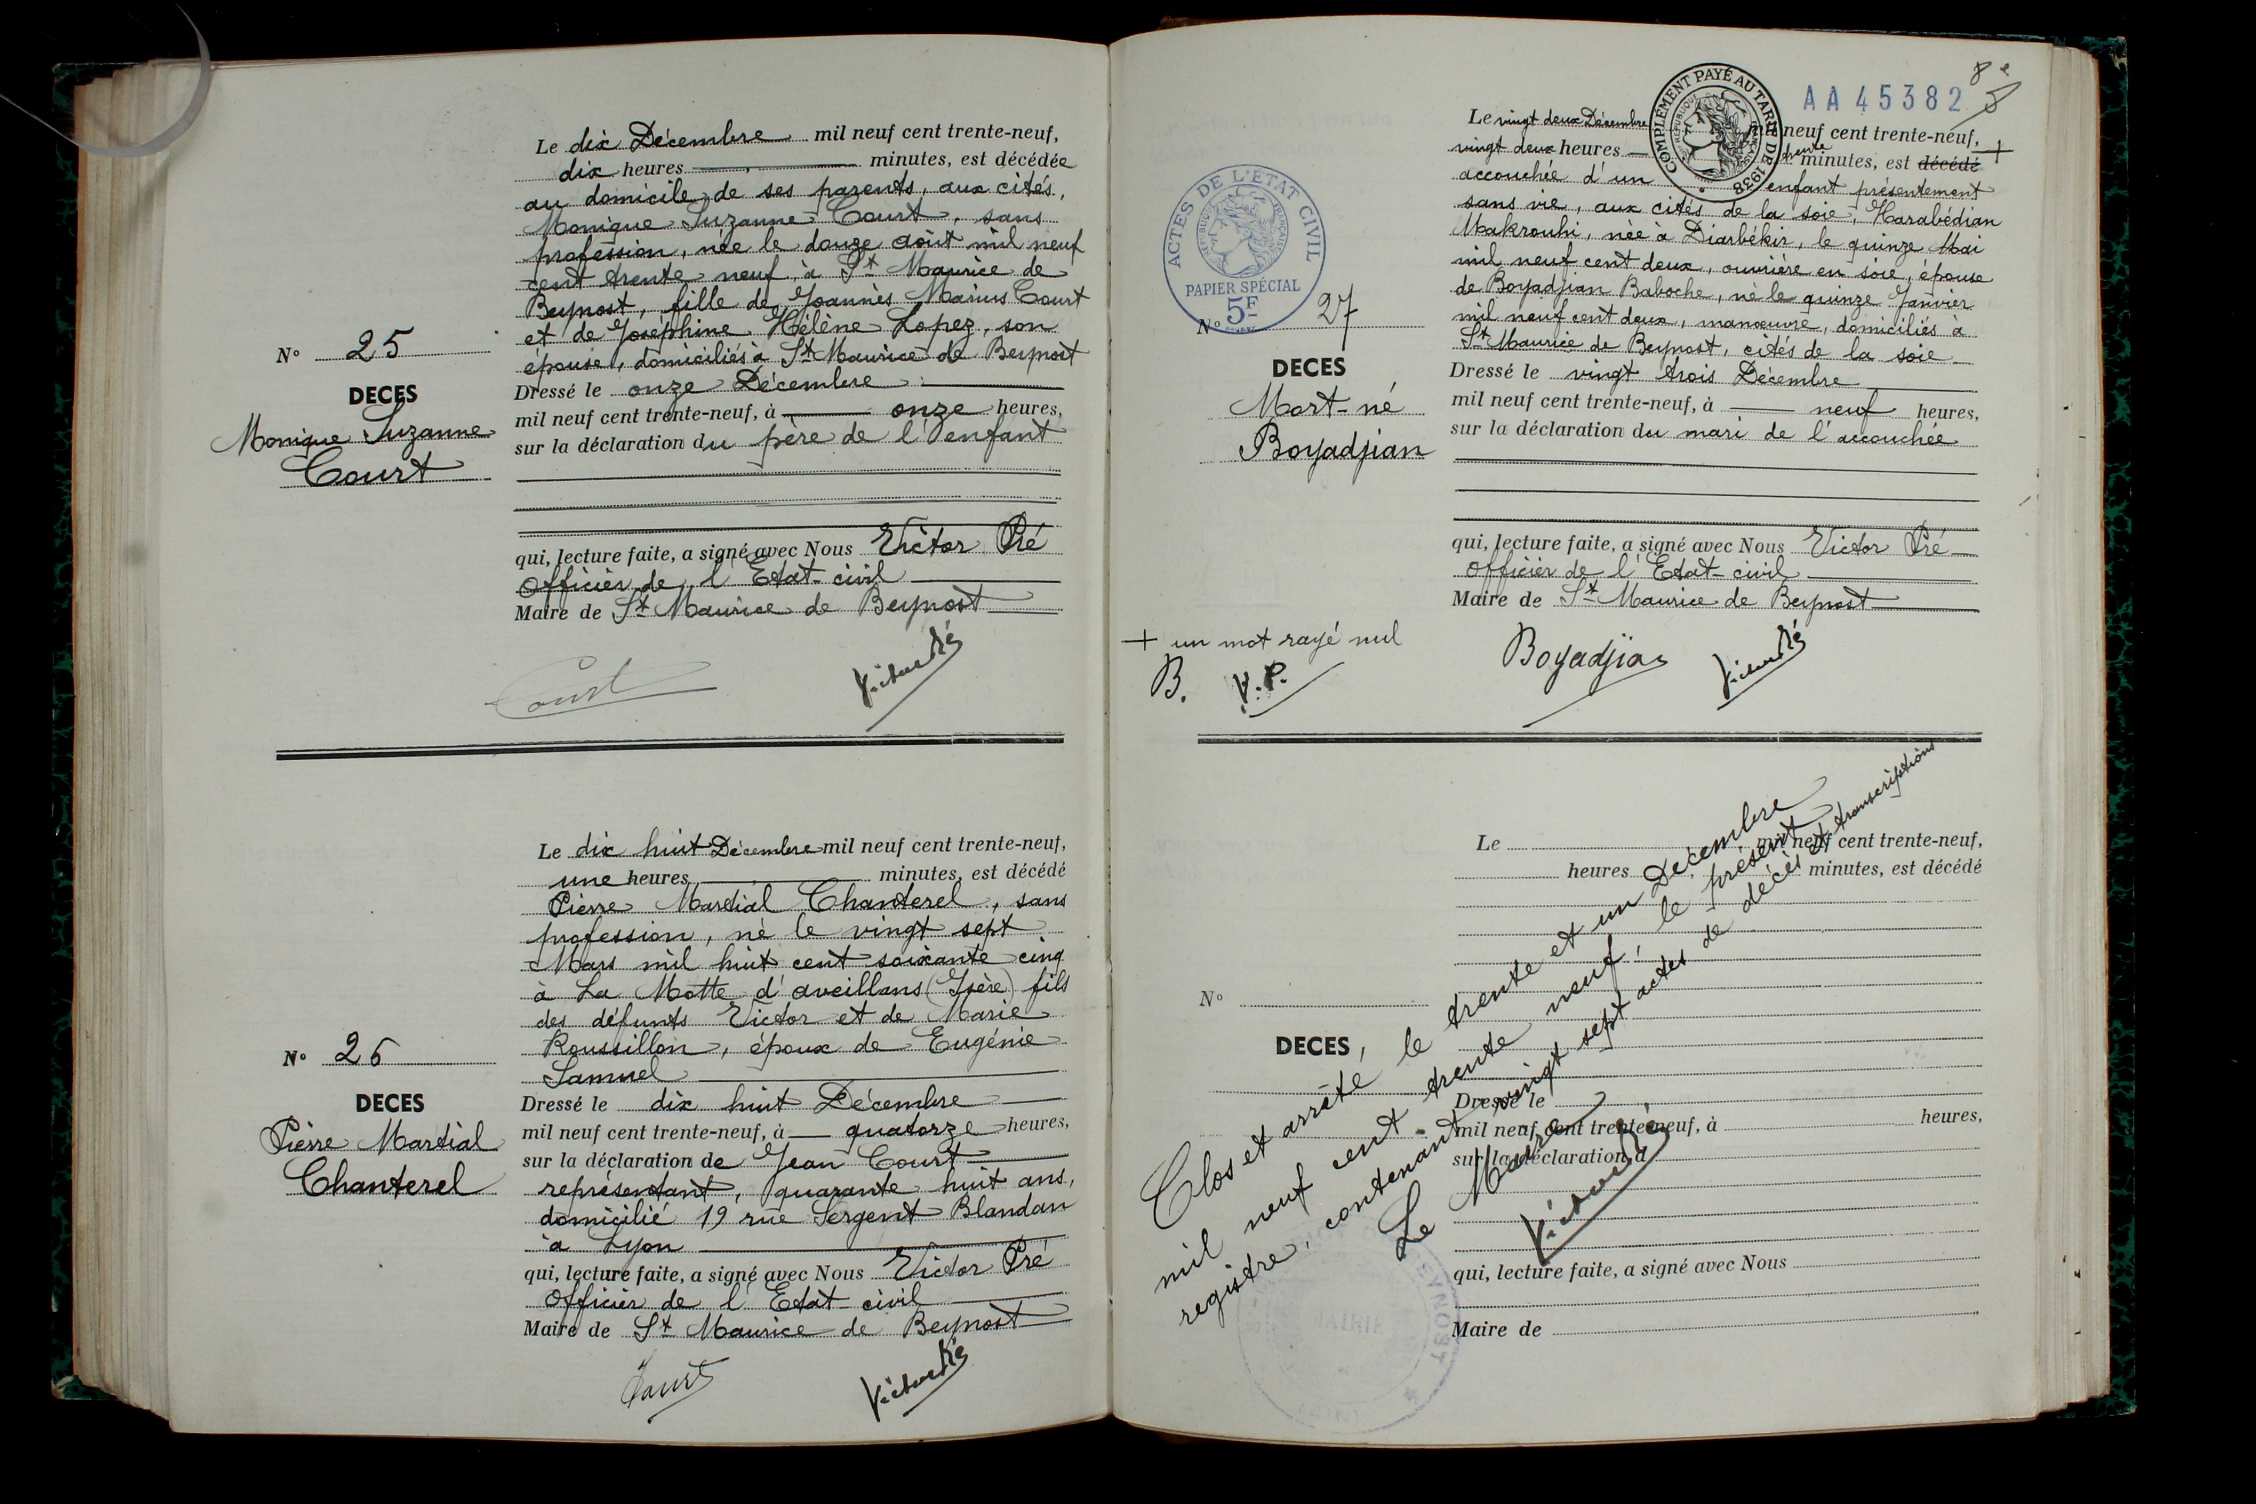 Le dix Décembre mil neuf cent trente-neuf,
dix heures minutes, est décédée
au domicile de ses parents, aux cités,
Monique Suzanne Court, sans
profession, née le douze août mil neuf
cent trente neuf, à St Maurice de
Beynost, fille de Joannès Marius Court
et de Joséphine Hélène Lopez, son
épouse, domiciliés à St Maurice de Beynost
Dressé le onze Décembre
mil neuf cent trente-neuf, à onze heures,
sur la déclaration du père de l'enfant
qui, lecture faite, a signé avec Nous Victor Pré
Officier de l'Etat-civil
Maire de St Maurice de Beynost
N° 25
DECES
Monique Suzanne
Court
Court Victor Pré
Le dix huit Décembre mil neuf cent trente-neuf,
une heures minutes, est décédé
Pierre Martial Chanterel, sans
profession, né le vingt sept
Mars mil huit cent soixante cinq
à La Motte d'aveillans (Isère) fils
des défunts Victor et de Marie
Roussillon, époux de Eugénie
Samuel
Dressé le dix huit Décembre
mil neuf cent trente-neuf, à quatorze heures,
sur la déclaration de Jean Court
représentant, quarante huit ans,
domicilié 19 rue Sergent Blandan
à Lyon
qui, lecture faite, a signé avec Nous Victor Pré
Officier de l'Etat-civil
Maire de St Maurice de Beynost
N° 26
DECES
Pierre Martial
Chanterel
Court Victor Pré
8e
AA 45382
COMPLÉMENT PAYÉ AU TARIF DE 1938
ACTES DE L'ETAT CIVIL
PAPIER SPÉCIAL
5F
Le vingt deux Décembre mil neuf cent trente-neuf,
vingt deux heures trente minutes, est décédé +
accouchée d'un enfant présentement
sans vie, aux cités de la soie, Harabédian
Makrouhi, née à Diarbékir, le quinze Mai
mil neuf cent deux, ouvrière en soie, épouse
de Boyadjian Baboche, né le quinze Janvier
mil neuf cent deux, manœuvre, domiciliés à
St Maurice de Beynost, cités de la soie
Dressé le vingt trois Décembre
mil neuf cent trente-neuf, à neuf heures,
sur la déclaration du mari de l'accouchée
qui, lecture faite, a signé avec Nous Victor Pré
Officier de l'Etat-civil
Maire de St Maurice de Beynost
N° 27
DECES
Mort-né
Boyadjian
+ un mot rayé nul
B. V.P.
Boyadjian Victor Pré
Le mil neuf cent trente-neuf,
heures minutes, est décédé
N°
DECES,
Dressé le
mil neuf cent trente-neuf, à heures,
sur la déclaration d
qui, lecture faite, a signé avec Nous
Maire de
Clos et arrêté le trente et un Décembre
mil neuf cent trente neuf, le présent
registre, contenant vingt sept actes de décès et transcriptions
Le Maire
Victor Pré
MAIRIE